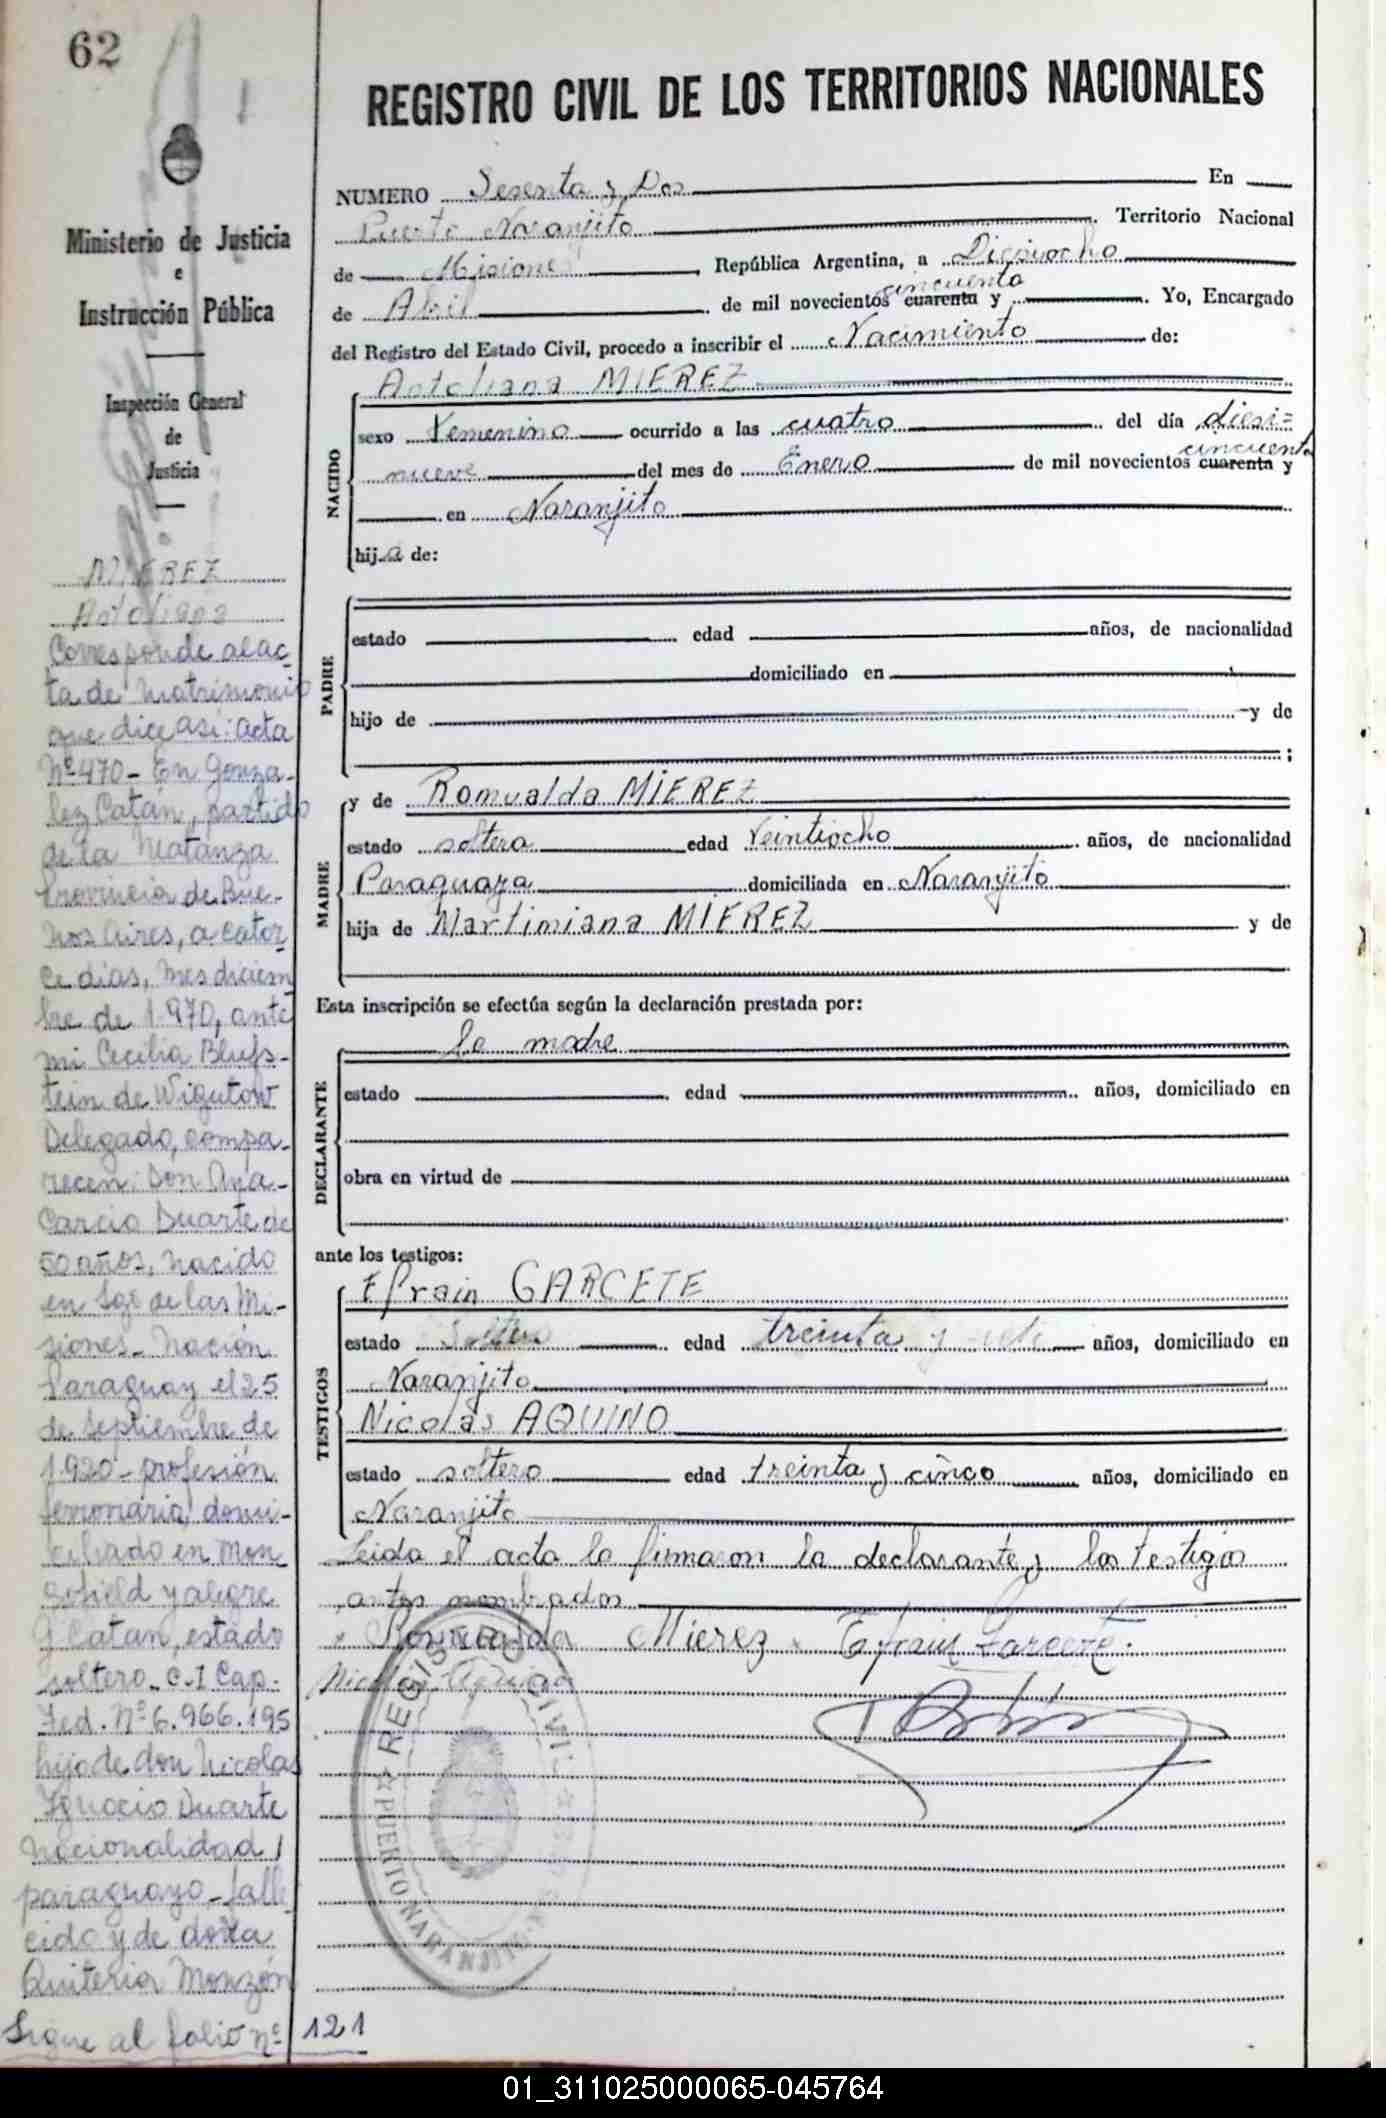 62
Ministerio de Justicia
e
Instrucción Pública
Inspección General
de
Justicia
MIEREZ
Antoliana
Corresponde al ac-
ta de matrimonio
que dice asi: acta
Nº 470 - En Gonza-
lez Catán, partido
de la Matanza
Provincia de Bue-
nos Aires, a cator-
ce dias, mes diciem
bre de 1.970, ante
mi Cecilia Blufs-
tein de Wigutow
Delegado, compa-
recen: Don Aya-
Carcio Duarte de
50 años, nacido
en Sgo de las Mi-
siones - Nación
Paraguay el 25
de septiembre de
1.920 - profesión
ferroviario, domi-
ciliado en Mon
señield y alegre
G. Catan, estado
soltero - C.I Cap.
Fed. Nº 6.966.195
hijo de don Nicolas
Ignacio Duarte
nacionalidad
paraguayo - falle
cido y de doña
Quiteria Monzón
Sigue al folio nº 121
REGISTRO CIVIL DE LOS TERRITORIOS NACIONALES
NUMERO Sesenta y Dos En
Puerto Naranjito Territorio Nacional
de Misiones, República Argentina, a Dieciocho
cincuenta
de Abril de mil novecientos cuarenta y . Yo, Encargado
del Registro del Estado Civil, procedo a inscribir el Nacimiento de:
NACIDO
Antoliana MIEREZ
sexo Femenino ocurrido a las cuatro del día diesi-
cincuenta
nueve del mes de Enero de mil novecientos cuarenta y
en Naranjito
hija de:
PADRE
estado edad años, de nacionalidad
domiciliado en
hijo de y de
;
MADRE
y de Romualda MIEREZ
estado soltera edad Veintiocho años, de nacionalidad
Paraguaya domiciliada en Naranjito
hija de Martimiana MIEREZ y de
Esta inscripción se efectúa según la declaración prestada por:
DECLARANTE
la madre
estado edad años, domiciliado en
obra en virtud de
ante los testigos:
TESTIGOS
Efrain GARCETE
estado Soltero edad treinta y siete años, domiciliado en
Naranjito
Nicolás AQUINO
estado soltero edad treinta y cinco años, domiciliado en
Naranjito
Leida el acta la firmaron la declarante y los testigos
antes nombrados
x Romualda Mierez x Efrain Garcete.
Nicolas Aquino
REGISTRO CIVIL
PUERTO NARANJITO
01_311025000065-045764